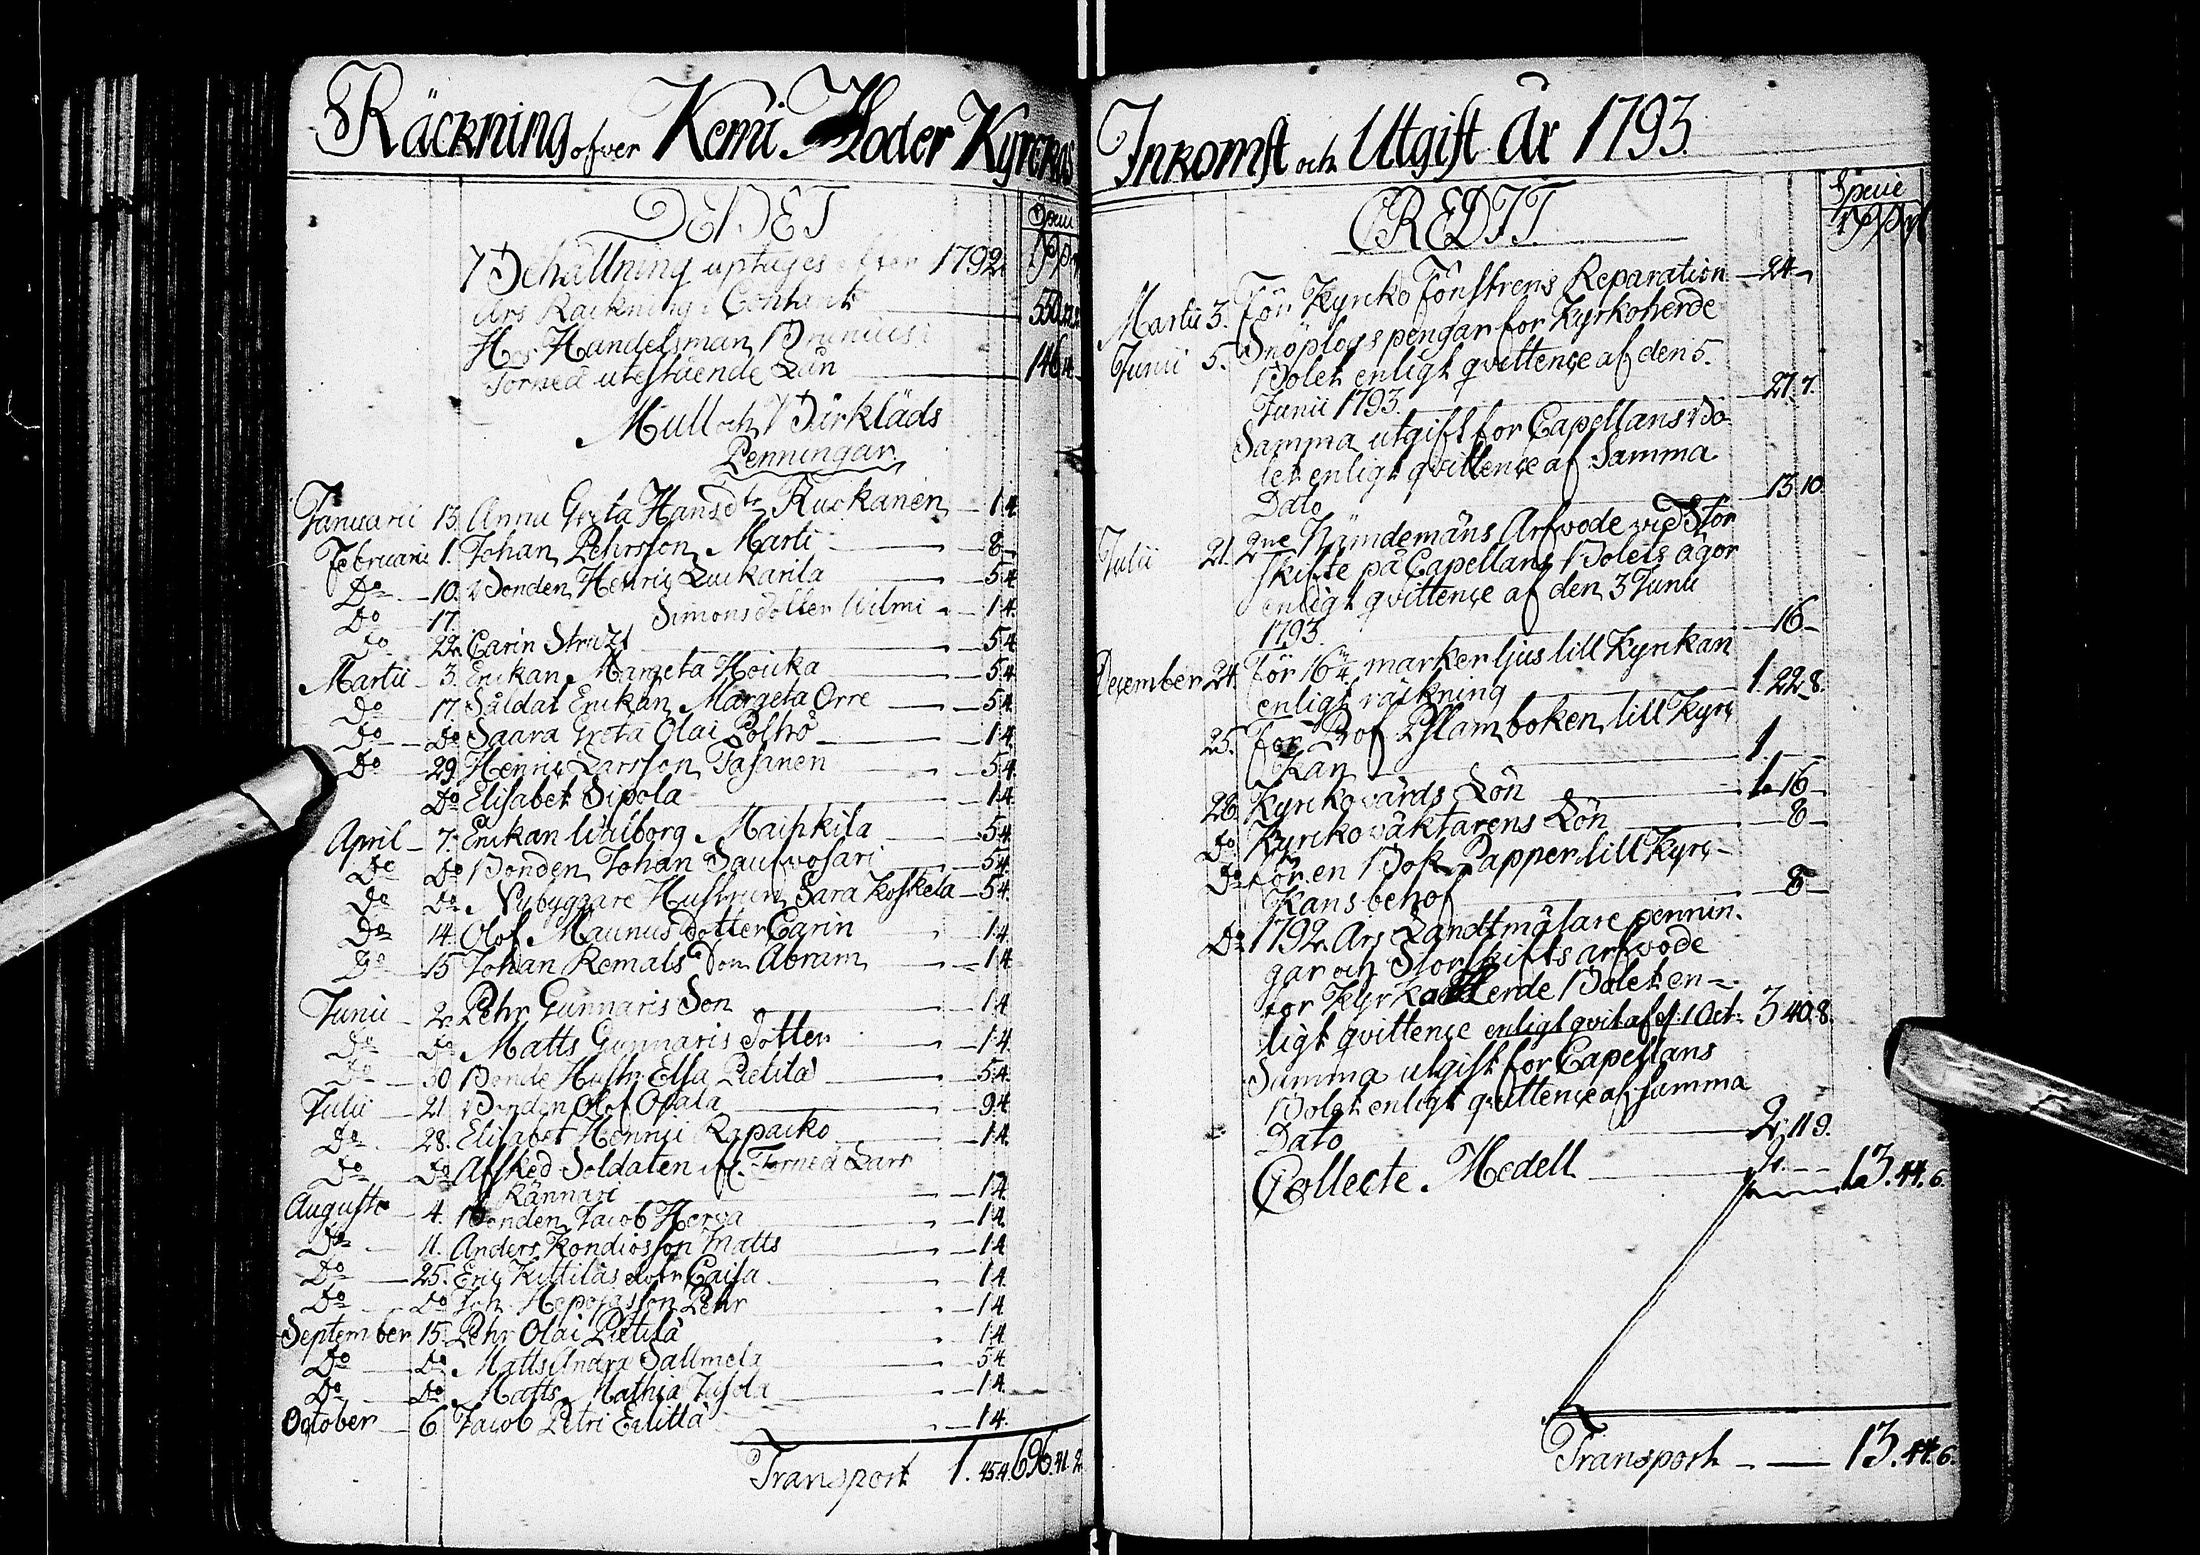 Räckning öfver Kemi Moder Kyrckas
DEBET
Specie
Behållning uptages efter 1792
Års Räckning i Contant
Hos Handelsman Brunius i
Torneå utestående Lån
Mull och Bårkläds
Penningar
Januarii 13. Anna Greta Hansdtr Ruokanen 1 4
Februarii 1. Johan Pehrsson Marti 8
Do 10. Bonden Henric Luckarila 5 4
Do 17. Simonsdotter Wilmi 1 4
Do 22. Carin Strutz 5 4
Martii 3. Enkan Margeta Houka 5 4
Do 17. Såldat Enkan Margeta Orre 5 4
Do Do Saara Greta Olai Poltro 1 4
Do 29 Henric Larsson Tasanen 5 4
Do Elisabet Sipola 1 4
April 7. Enkan Walborg Maihkila 5 4
Do Do Bonden Johan Saufvosari 5 4
Do Do Nybyggare Hustrun Sara Koskela 5 4
Do 14. Olof Maunus dotter Carin 1 4
Do 15 Johan Remals Son Abram 1 4
Junii 2. Pehr Gunnaris Son 1 4
Do Do Matts Gunnaris Dotter 1 4
Do 30 Bonde Hustr. Elsa Pietilä 5 4
Julii 21 Bonden Olof Opala 9 4
Do 28. Elisabet Henrici Rapacko 1 4
Do Do Afsked Soldaten af Torneå Lars
Rännari 1 4
Augusti 4. Bonden Jacob Herva 1 4
Do 11. Anders Kondiosson Matts 1 4
Do 25. Eric Kittiläs dotr Caisa 1 4
Do Do Joh. Hepojasson Pehr 1 4
September 15. Pehr Olai Pietilä 1 4
Do Do Matts Andra Sallmela 5 4
Do Do Matts Mathia Jusola 1 4
October 6 Jacob Petri Eilittä 1 4
Transport 1. 45 4 696. 41. 2
Inkomst och Utgift År 1793.
CREDIT
Specie
Martii 3. För Kyrcko Fönstrens Reparation 24
Junii 5. Snöplogs pengar för Kyrkoherde
Bolet enligt qvittence af den 5.
Junii 1793. 27. 7.
Samma utgift for Capellans Bo
let enligt qvittence af Samma
Dato 13 10
Julii 21. 2ne Nämdemäns Arfvode vid Stor
skifte på Capellans Bolets ägor
enligt qvittence af den 3 Junii
1793. 16
December 24. För 16 1/4 marker ljus till Kyrkan
enligt räckning 1. 22. 8.
25. för Prof Psalmboken till Kyrc
kan 1.
26. Kyrckovärds Lön 1. 16
Do Kyrckoväktarens Lön 8
Do för en Bok Papper till Kyrc-
kans behof 8
Do 1792 Års Landtmätare pennin-
gar och Storskifts arfvode
för Kyrkoherde Bolet en-
ligt qvittence enligt qvit af d. 1 Oct. 3 40. 8.
Samma utgift for Capellans
Bolet enligt qvittence af samma
Dato 2. 11 9.
Collecte Medell 13. 44. 6.
Transport 13. 44. 6.